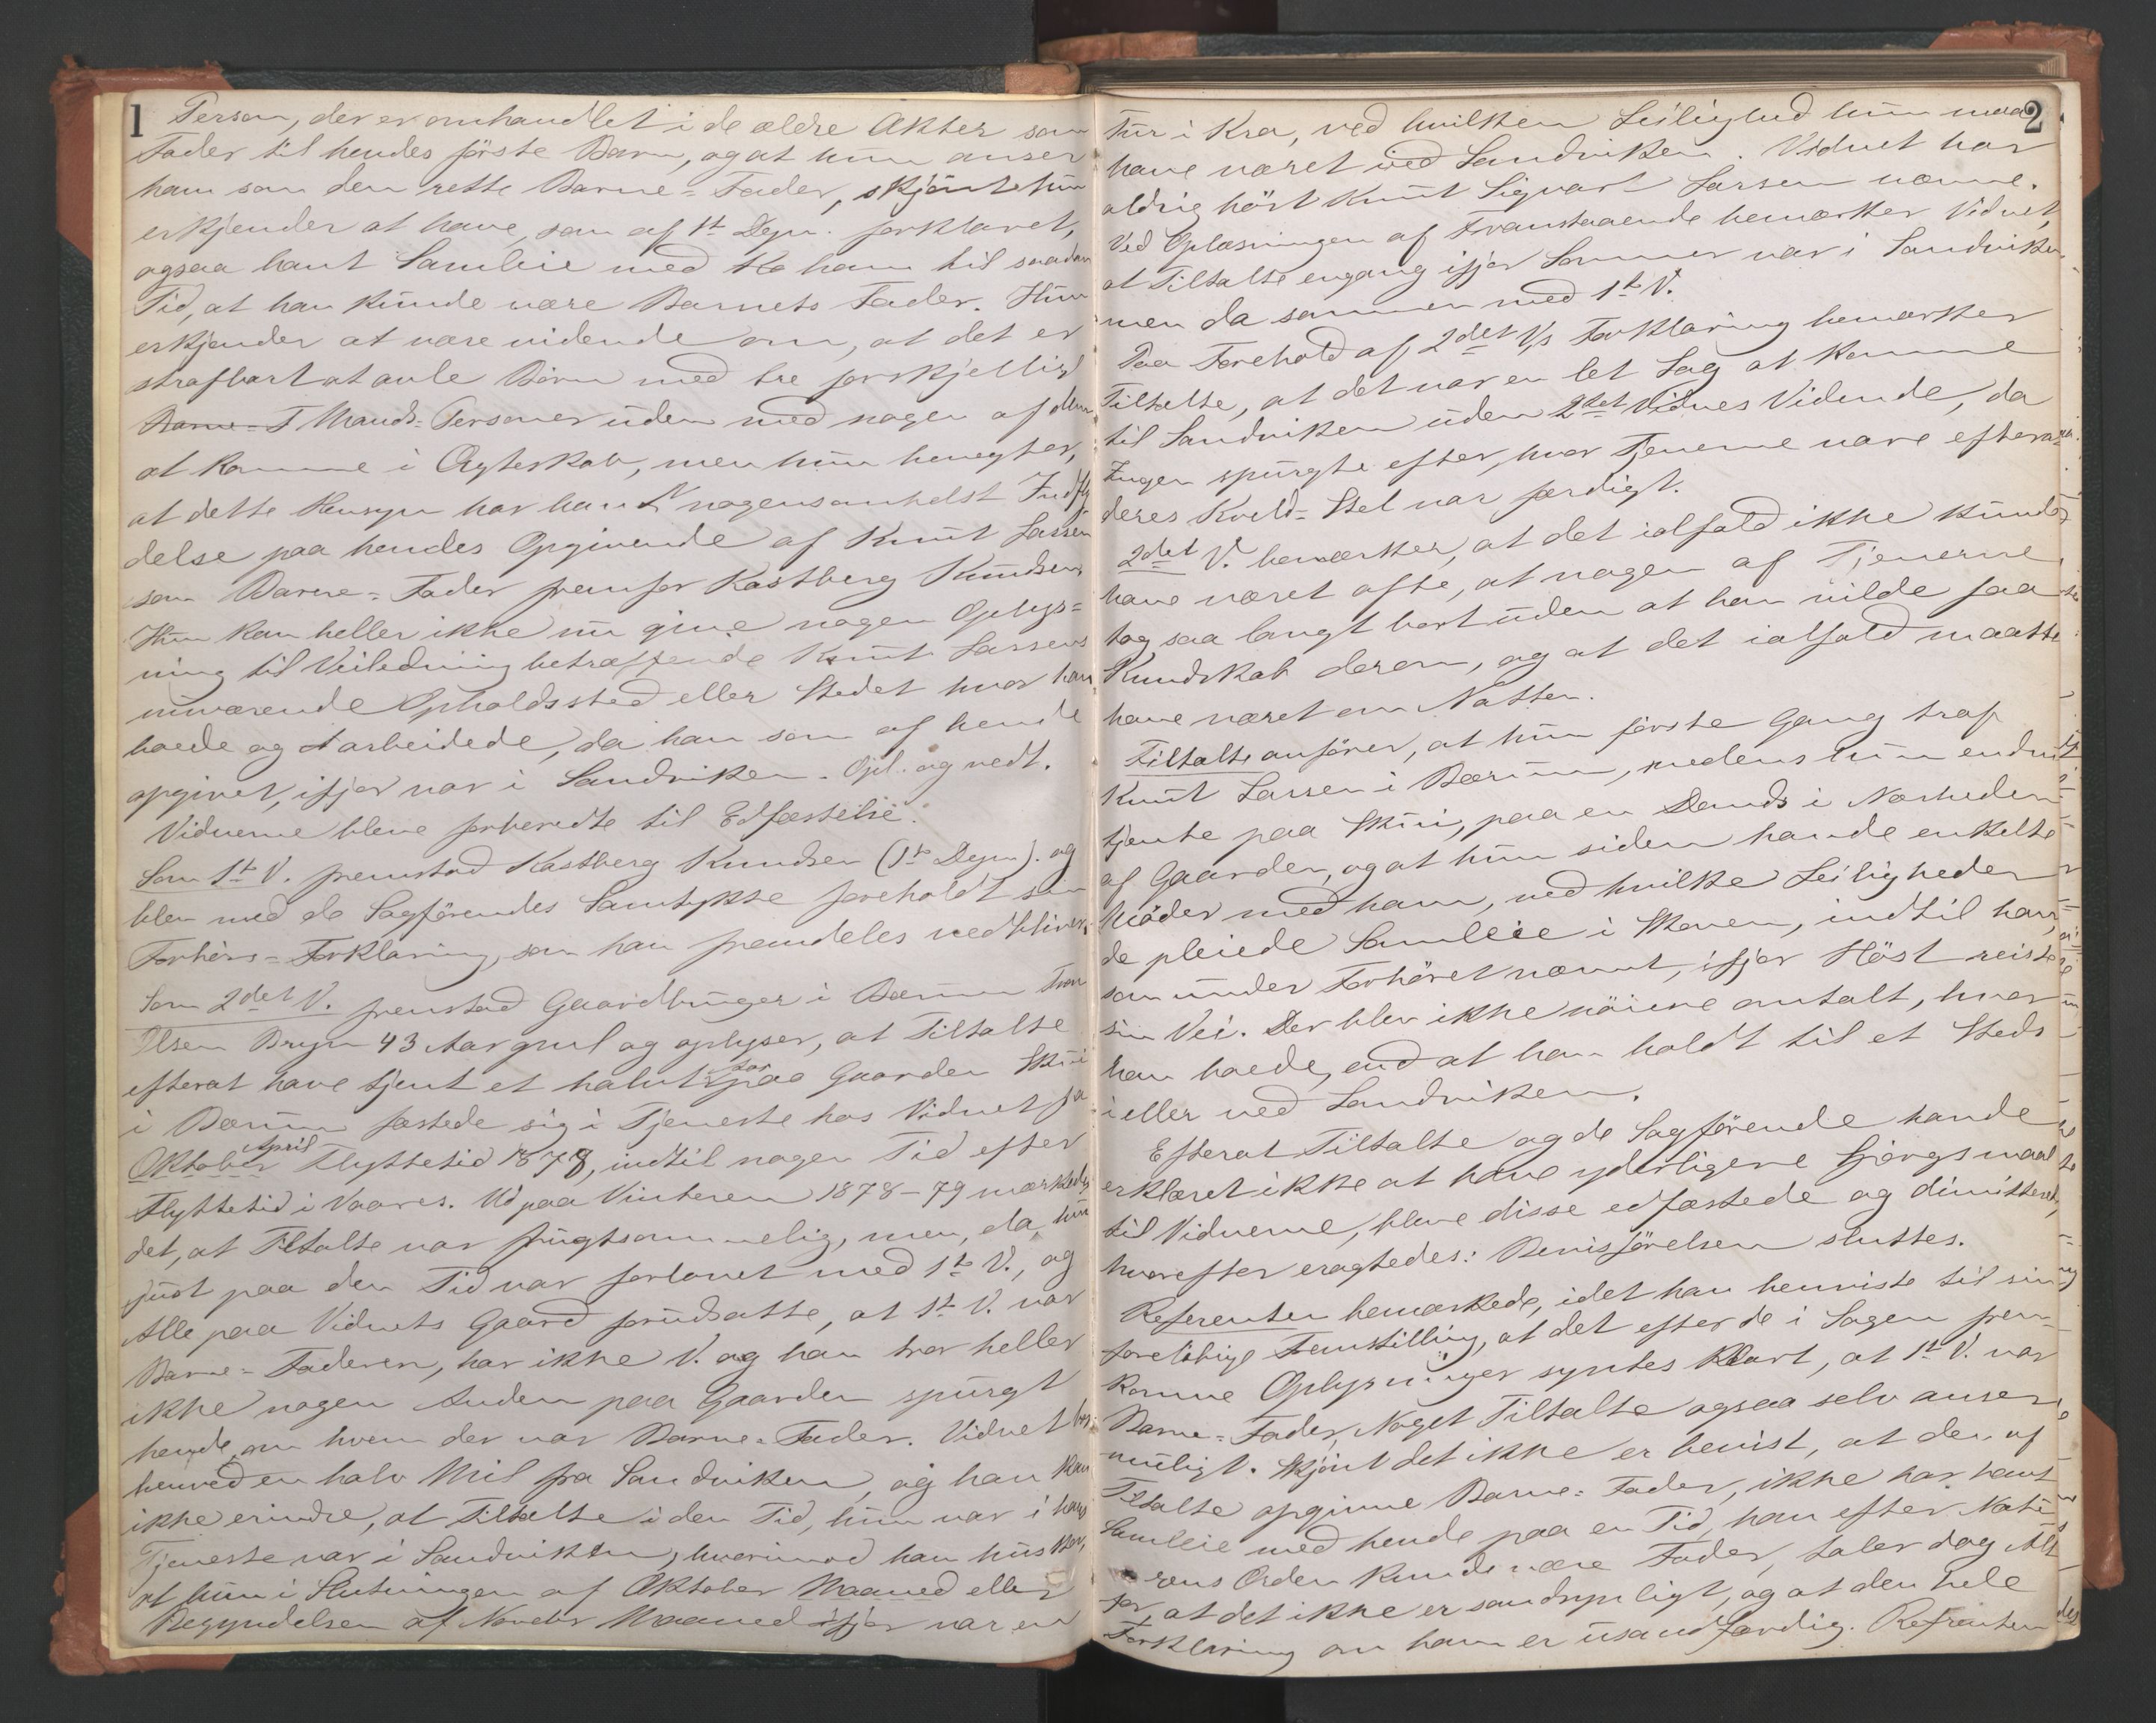 1
Person, der er omhandlet i de ældre Akter som
Fader til hendes förste Barn, og at hun anser
ham som den rette Barne-Fader, skjönt hun
erkjender at have, som af 1ste Depn. forklaret,
ogsaa havt Samleie med Ko ham til saadan
Tid, at han kunde være Barnets Fader. Hun
erkjender at være vidende om, at det er
strafbart at avle Börn med tre forskjellige
Barne-F Mands-Personer uden med nogen af dem
at komme i Ægteskab, men hun benegter,
at dette Hensyn har havt nogensomhelst Indfly
delse paa hendes Opgivende af Knut Larsen
som Barne-Fader fremfor Kastberg Knudsen.
Hun kan heller ikke nu give nogen Oplys-
ning til Veiledning betræffende Knut Larsens
nuværende Opholdssted eller Stedet hvor han
boede og arbeidede, da han som af hende
opgivet, ifjor var i Sandviken. Opl. og vedt.
Vidnerne bleve forberedte til Edfæstelse.
Som 1ste V. fremstod Kastberg Knudsen (1ste Depn). og
blev med de Sagförendes Samtykke foreholdt sin
Forhörs-Forklaring, som han fremdeles vedbliver.
Som 2det V. fremstod Gaardbruger i Bærum
Olsen Bryn 43 Aar gml og oplyser, at Tiltalte
efterat have tjent et halvt Aar paa Gaarden Skui
i Bærum fæstede sig i Tjeneste hos Vidnet fra
Oktober April Flyttetid 1878, indtil nogen Tid efter
Flyttetid i Vaares. Ud paa Vinteren 1878-79 mærkedes
det, at Tiltalte var frugtsommelig, men, da hun
just paa den Tid var forlovet med 1ste V., og
Alle paa Vidnets Gaard forudsatte, at 1ste V. var
Barne-Faderen, har ikke V. og han tror heller
ikke nogen Anden paa Gaarden spurgt
hende, om hvem der var Barne-Fader. Vidnet bor
henved en halv Mil fra Sandviken, og han kan
ikke erindre, at Tiltalte i den Tid, hun var i hans
Tjeneste var i Sandviken, hvorimod han husker,
at hun i Slutningen af Oktober Maaned eller
Begyndelsen af Novebr Maaned ifjor var en
2
Tur i Kra, ved hvilken Leilighed hun maa
have været ved Sandviken. Vidnet har
aldrig hört Knut Sigvart Larsen nævne.
Ved Oplæsningen af Franstaaende bemærker Vidnet,
at Tiltalte engang ifjor Sommer var i Sandviken,
men da sammen med 1ste V.
Paa Forehold af 2det V's Forklaring bemærker
Tiltalte, at det var en let Sag at komme
til Sandviken uden 2det Vidnes Vidende, da
Ingen spurgte efter, hvor Tjenerne vare efterat
deres Kveld-Stel var færdigt.
2det V. bemærker, at det ialfald ikke kunde
have været ofte, at nogen af Tjenerne
tog saa langt bort uden at han vilde faa
Kundskab derom, og at det ialfald maatte
have været om Natten.
Tiltalte anförer, at hun förste Gang traf
Knut Larsen i Bærum, medens hun endnu
tjente paa Skui, paa en Dands i Nærheden
af Gaarden, og at hun siden havde enkelte
Möder med ham, ved hvilke Leiligheder
de pleiede Samleie i Skoven, indtil han,
som under Forhöret nævnt, ifjor Höst reiste
sin Vei. Der blev ikke nöiere omtalt, hvor
han boede, end at han holdt til et Steds
i eller ved Sandviken.
Efterat Tiltalte og de Sagförende havde
erklæret ikke at have yderligere Spörgsmaal
til Vidnerne, bleve disse edfæstede og dimitterede,
hvorefter eragtedes: Bevisförelsen sluttes.
Referenten bemærkede, idet han henviste til sin
forelöbige Fremstilling, at det efter de i Sagen frem-
komne Oplysninger syntes klart, at 1ste V. var
Barne-Fader, Noget Tiltalte ogsaa selv anser
muligt. Skjönt det ikke er bevist, at den af
Tiltalte opgivne Barne-Fader, ikke har havt
Samleie med hende paa en Tid, han efter Natu
rens Orden kunde være Fader, taler dog Alt
for, at det ikke er sandsynligt, og at den hele
Forklaring om ham er usandfærdig. Referenten